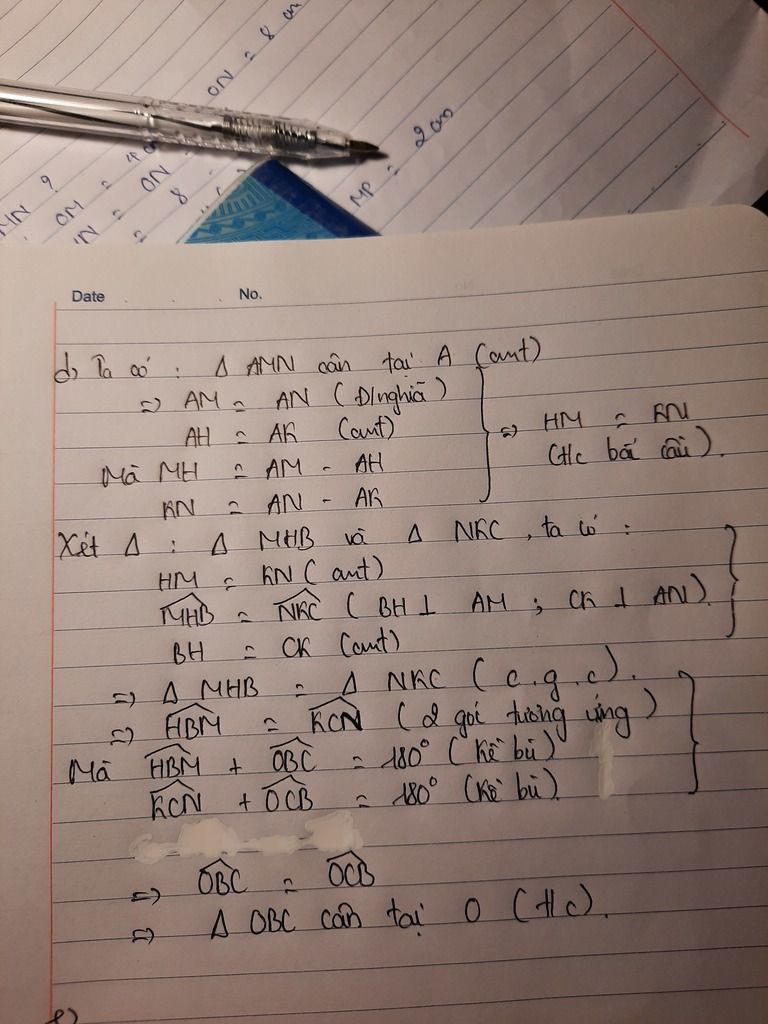 ON = 8 cm
MN ?
OM = 4 cm
MN = ON -
= 8
MP = 2 cm
Date No.
d, Ta có : Δ AMN cân tại A (cmt)
=> AM = AN ( Đ/nghĩa )
AH = AK (cmt)
Mà MH = AM - AH
KN = AN - AK
=> HM = KN
(t/c bắc cầu).
Xét Δ : Δ MHB và Δ NKC, ta có :
HM = KN ( cmt)
MHB = NKC ( BH ⊥ AM ; CK ⊥ AN)
BH = CK (cmt)
=> Δ MHB = Δ NKC ( c.g.c).
=> HBM = KCN (2 góc tương ứng )
Mà HBM + OBC = 180° ( kề bù)
KCN + OCB = 180° (kề bù).
=> OBC = OCB
=> Δ OBC cân tại O (t/c).